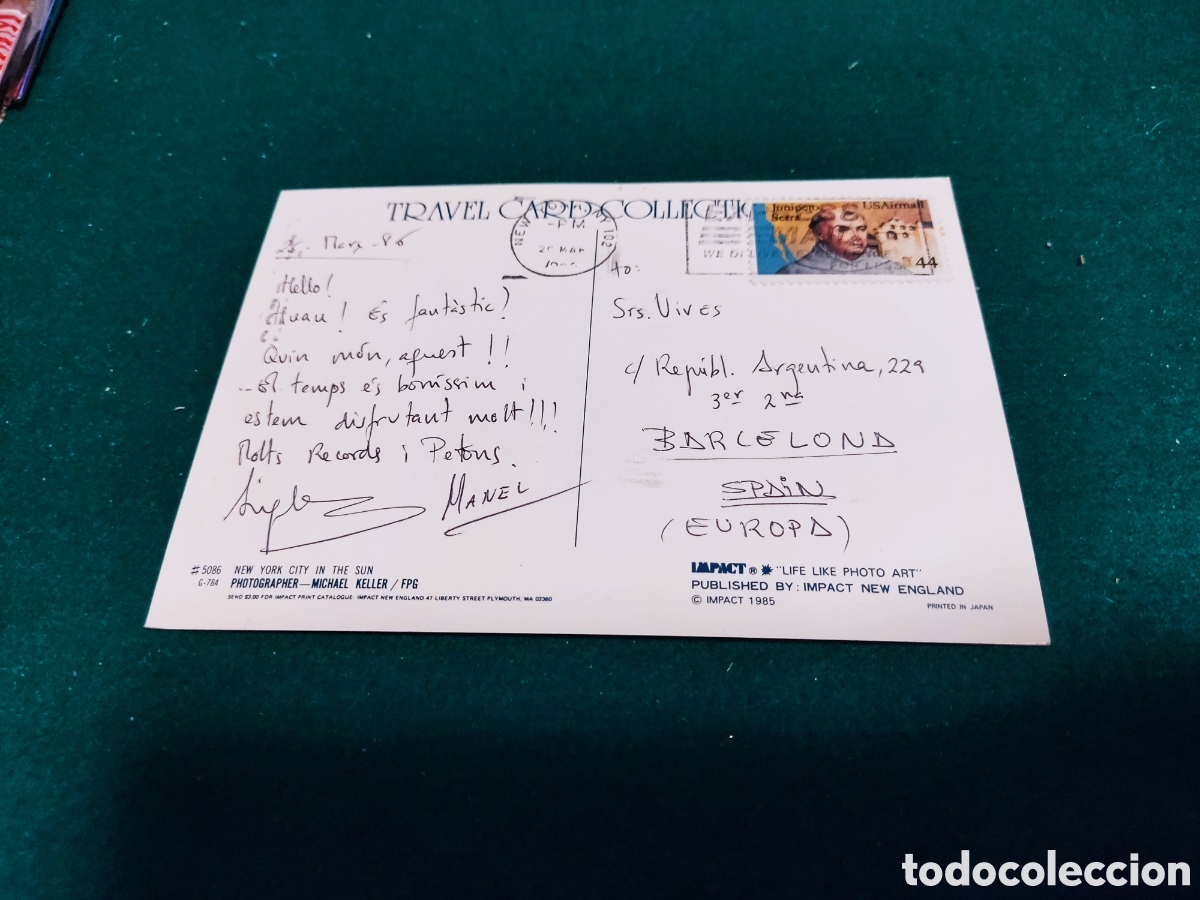 TRAVEL CARD COLLECTION
NEW NY 102
-PM
MAR
WE DELIVER
Junipero Serra USAirmail
44
Març - 86
Hello!
! És fantàstic!
Quin món, aquest!!
El temps és bonissim i
estem disfrutant molt!!!
Molts Records i Petons.
MANEL
To:
Srs. Vives
c/ Repúbl. Argentina, 229
3er 2na
BARCELONA
SPAIN
(EUROPA)
#5086 NEW YORK CITY IN THE SUN
G-784 PHOTOGRAPHER—MICHAEL KELLER / FPG
SEND $3.00 FOR IMPACT PRINT CATALOGUE: IMPACT NEW ENGLAND 47 LIBERTY STREET PLYMOUTH, MA 02360
IMPACT ® "LIFE LIKE PHOTO ART"
PUBLISHED BY: IMPACT NEW ENGLAND
© IMPACT 1985
PRINTED IN JAPAN
todocoleccion